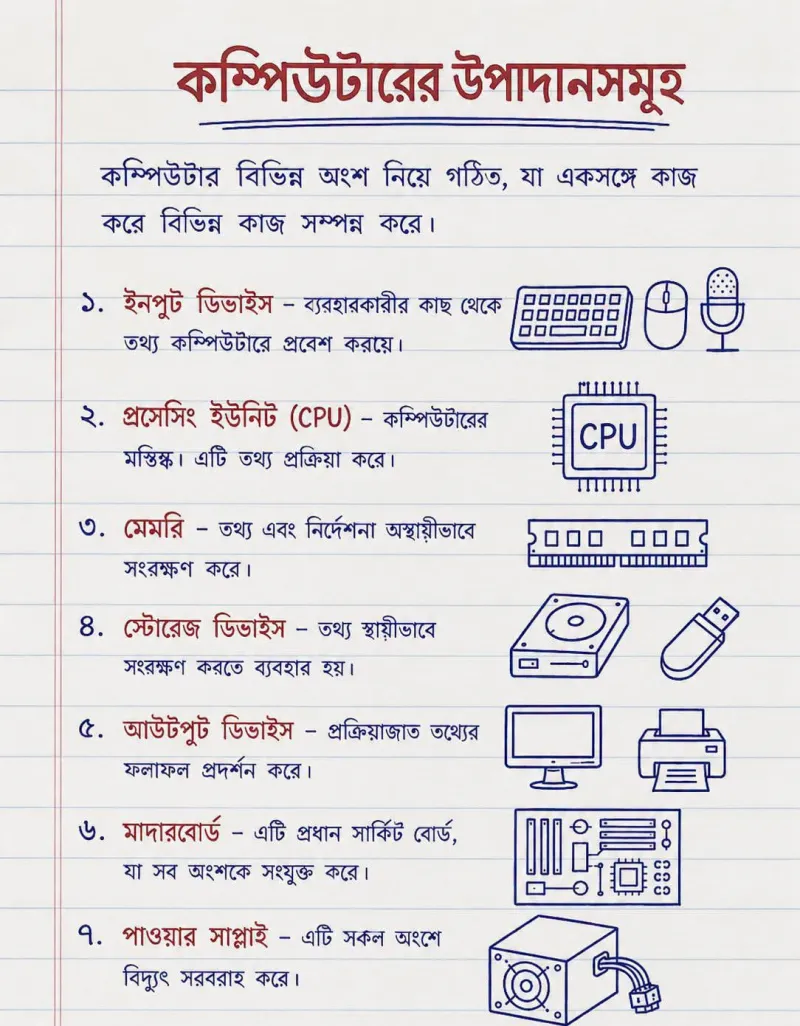 কম্পিউটারের উপাদানসমূহ
কম্পিউটার বিভিন্ন অংশ নিয়ে গঠিত, যা একসঙ্গে কাজ
করে বিভিন্ন কাজ সম্পন্ন করে।
১. ইনপুট ডিভাইস – ব্যরহারকারীর কাছ থেকে
তথ্য কম্পিউটারে প্রবেশ করয়ে।
২. প্রসেসিং ইউনিট (CPU) – কম্পিউটারের
মস্তিষ্ক। এটি তথ্য প্রক্রিয়া করে।
CPU
৩. মেমরি – তথ্য এবং নির্দেশনা অস্থায়ীভাবে
সংরক্ষণ করে।
৪. স্টোরেজ ডিভাইস – তথ্য স্থায়ীভাবে
সংরক্ষণ করতে ব্যবহার হয়।
৫. আউটপুট ডিভাইস – প্রক্রিয়াজাত তথ্যের
ফলাফল প্রদর্শন করে।
৬. মাদারবোর্ড – এটি প্রধান সার্কিট বোর্ড,
যা সব অংশকে সংযুক্ত করে।
৭. পাওয়ার সাপ্লাই – এটি সকল অংশে
বিদ্যুৎ সরবরাহ করে।